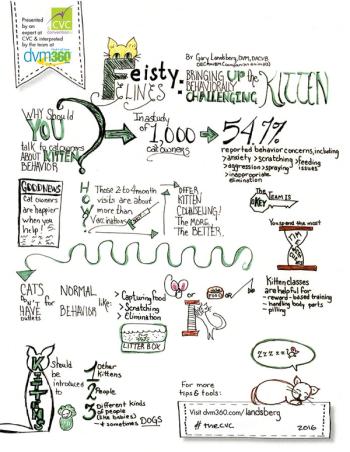 Presented by
an expert at
CVC & interpreted
by the team at
CVC
convention
dvm360
Feisty:
LINES
By Gary Landsberg, DVM, DACVB
BRINGING UP the
BEHAVIORALLY
CHALLENGING
KITTEN
WHY Should
YOU
talk to cat owners
ABOUT KITTEN
BEHAVIOR
?
In a study
of
1,000
cat owners
54%
reported behavior concerns, including
>anxiety >scratching >feeding
>aggression >spraying issues
>inappropriate
elimination
GOOD NEWS
cat owners
are happier
when you
help!
HOW
Those 2-to-4 month
visits are about
more than
Vaccinations
OFFER
KITTEN
COUNSELING!
The MORE
The BETTER.
The TEAM IS
KEY
You spend the most
TIME
CATS
DON'T
HAVE
outlets
for
NORMAL
BEHAVIOR
like:
> Capturing food
> Scratching
> Elimination
LITTER BOX
or
OR
Kitten classes
are helpful for
- reward-based training
- handling body parts
- pilling
KITTENS
Should
be
introduced
to
1 Other
kittens
2 People
3 Different kinds
of people
(like babies)
+ sometimes DOGS
zzzz
For more
tips & tools:
Visit dvm360.com/landsberg
#thecvc
2016